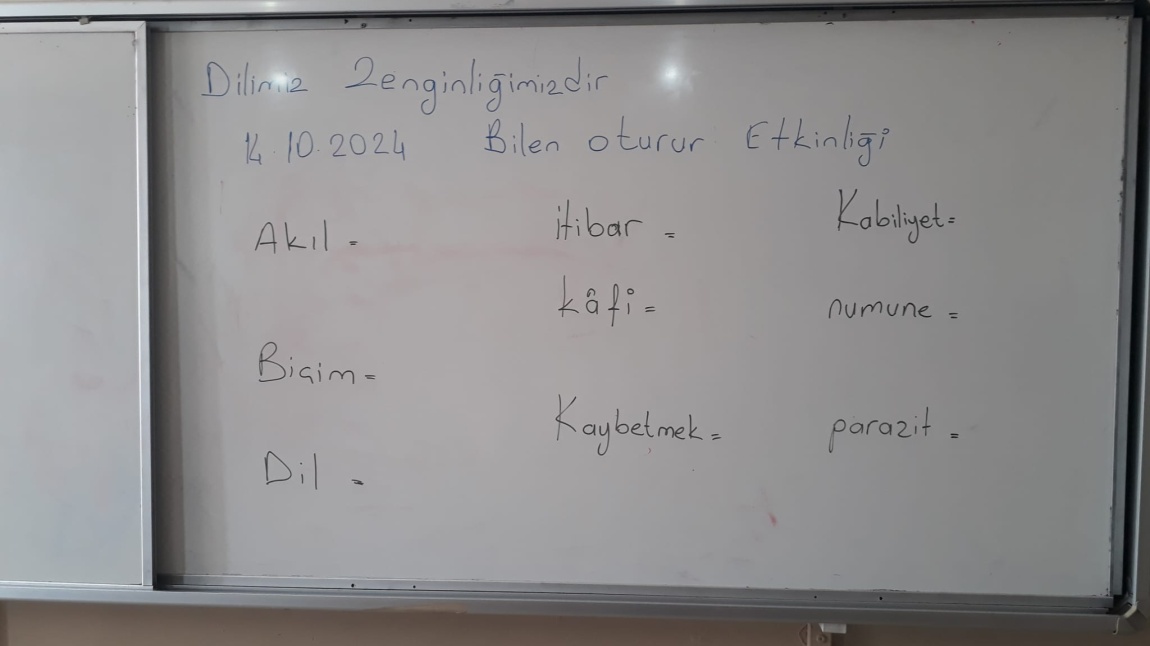 Dilimiz Zenginliğimizdir
14.10.2024 Bilen oturur Etkinliği
Akıl = itibar = Kabiliyet=
kâfi = numune =
Biçim=
Kaybetmek= parazit =
Dil =